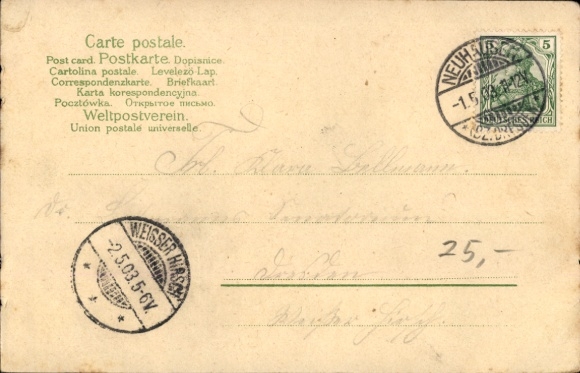 Carte postale.
Post card. Postkarte. Dopisnice.
Cartolina postale. Levelező-Lap.
Correspondenzkarte. Briefkaart.
Karta korespondencyjna.
Pocztówka. Открытое письмо.
Weltpostverein.
Union postale universelle.
5
NEUHAUSEN
-1.5.03
REICH
Frl. Klara Bellmann.
Dr. Sanatorium
WEISSER HIRSCH
-2.5.03.5-6V.
25,-
Dresden
Weißer Hirsch.